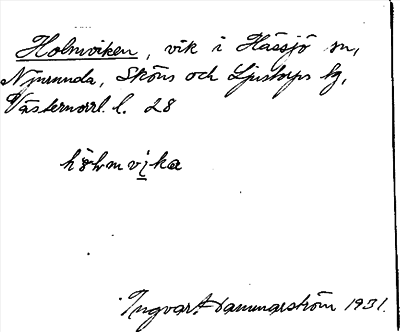 Holmviken, vik i Hässjö sn,
Njurunda, Sköns och Ljustorps tg,
Västernorrl. l. 28
hå̀lmvika
Ingvar Hammarström 1931.